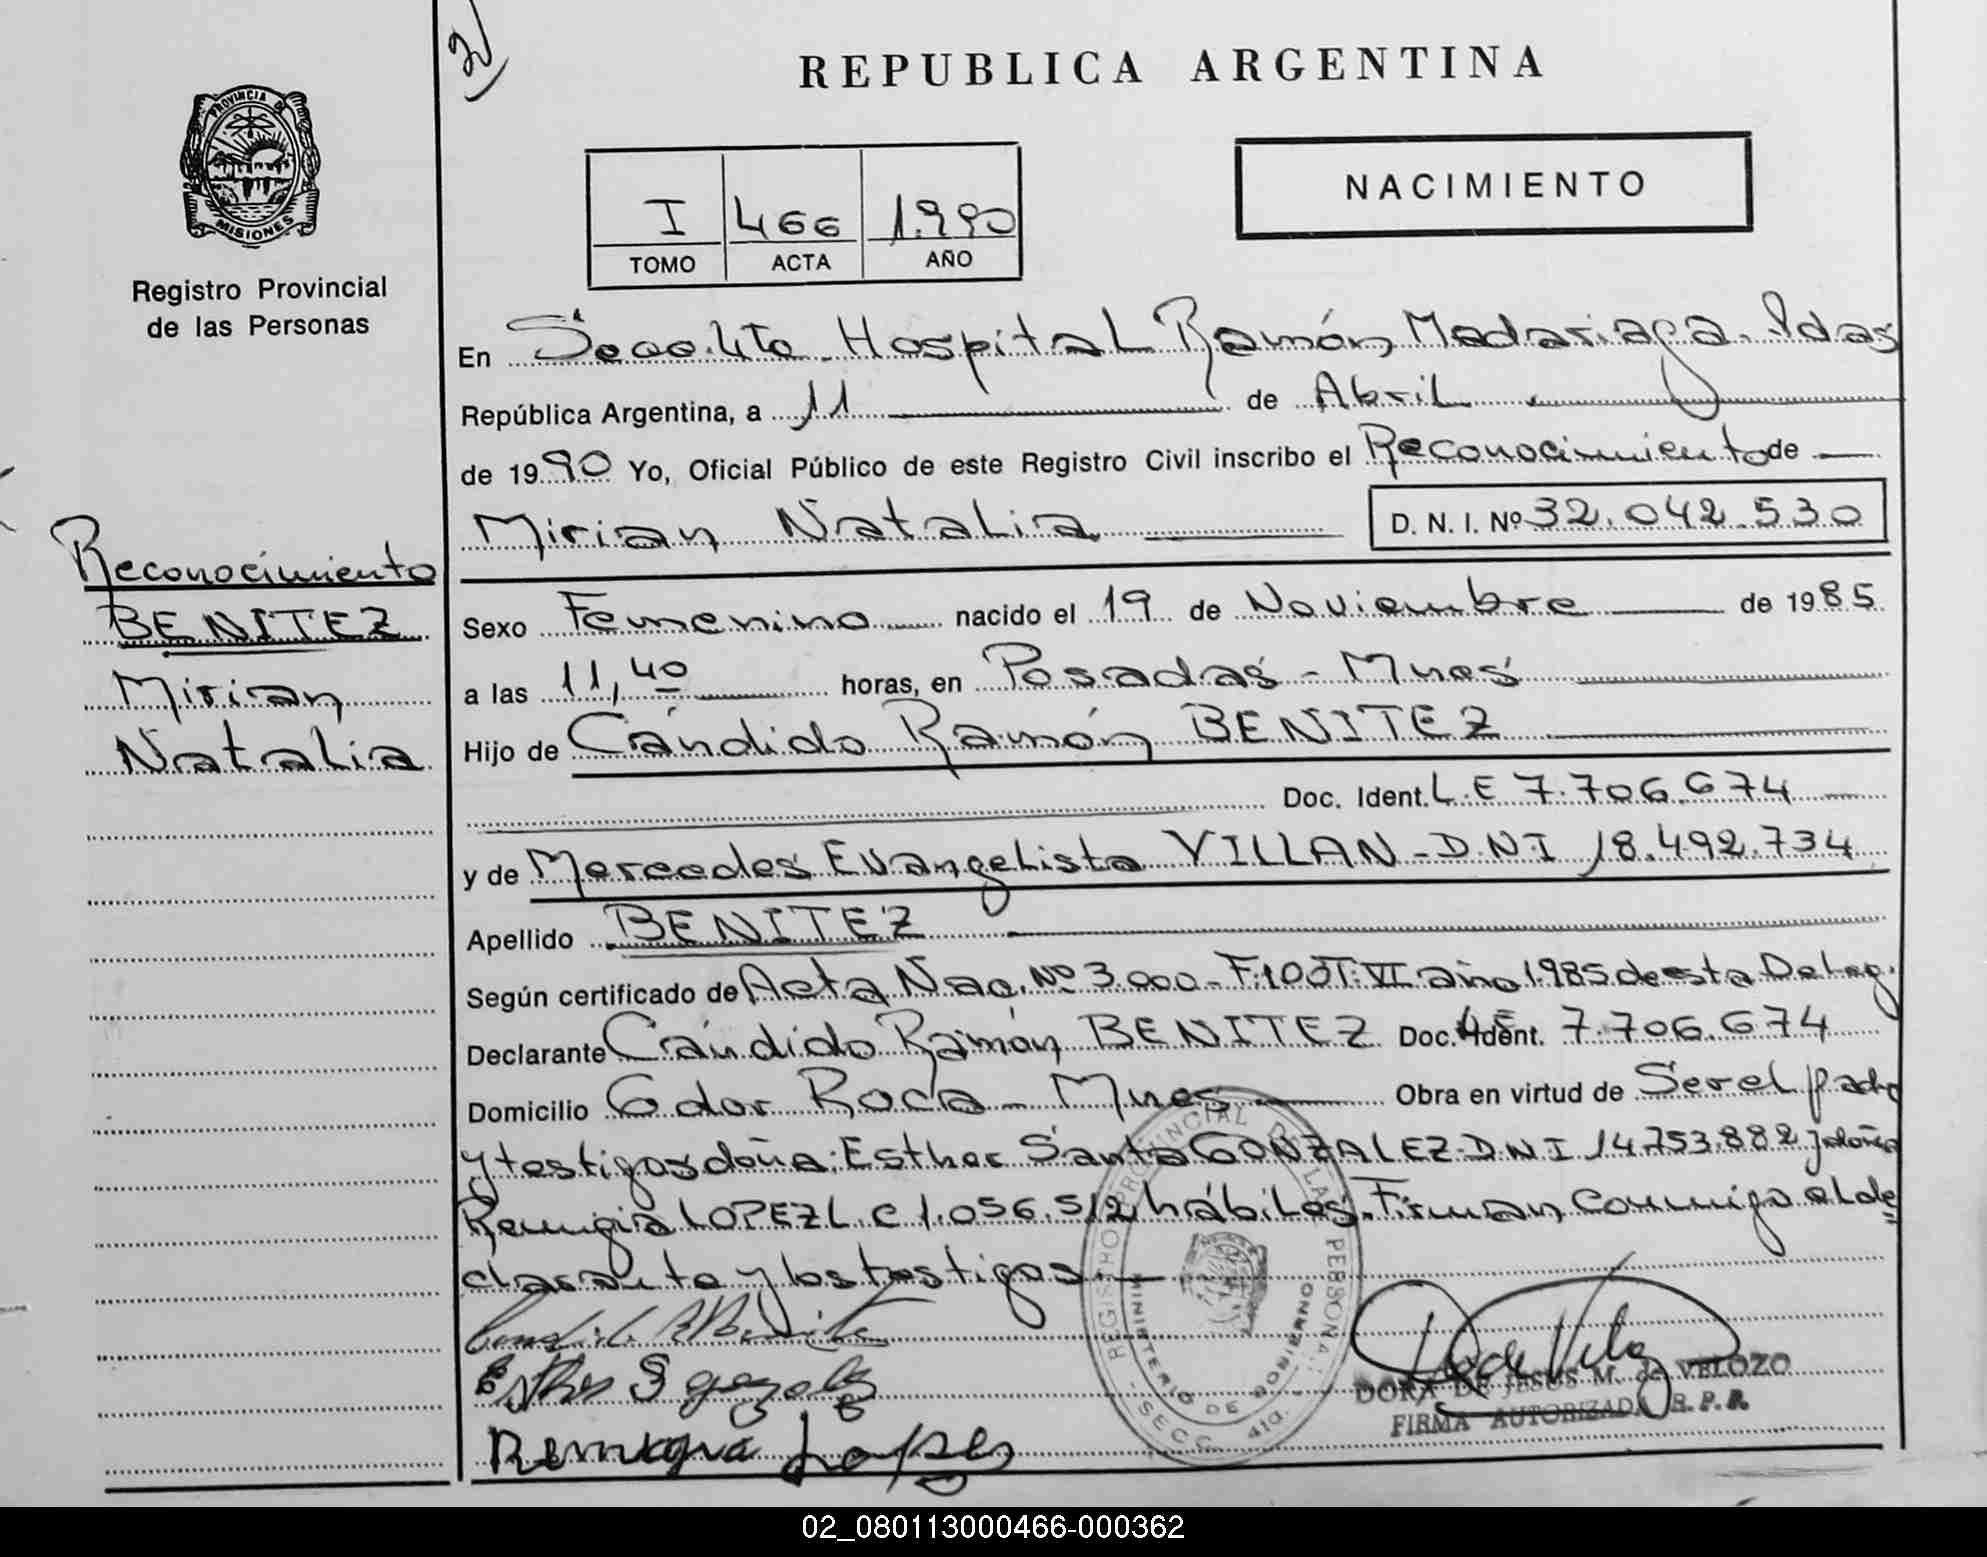 2)
REPUBLICA ARGENTINA
PROVINCIA DE
MISIONES
Registro Provincial
de las Personas
I 466 1.990
TOMO ACTA AÑO
NACIMIENTO
En Secc. 4ta. Hospital Ramón Madariaga. Pdas
República Argentina, a 11 de Abril
de 1990 Yo, Oficial Público de este Registro Civil inscribo el Reconocimiento de
Mirian Natalia D. N. I. Nº 32.042.530
Reconocimiento
BENITEZ
Mirian
Natalia
Sexo Femenino nacido el 19 de Noviembre de 1985
a las 11,40 horas, en Posadas - Mnes
Hijo de Cándido Ramón BENITEZ
Doc. Ident. L.E 7.706.674
y de Mercedes Evangelista VILLAN - D.N.I 18.492.734
Apellido BENITEZ
Según certificado de Acta Nac. Nº 3.000 - F.100 T. VI año 1.985 de esta Deleg.
Declarante Cándido Ramón BENITEZ Doc. Ident. 7.706.674
Domicilio Gdor Roca - Mnes Obra en virtud de Ser el padre
y testigos doña: Esther Santa GONZALEZ. D.N.I 14.753.882 y doña
Remigia LOPEZ L.C 1.056.512 hábiles. Firman conmigo el de=
clarante y los testigos.
Esther S gozalez
Remigia Lopez
REGISTRO PROVINCIAL DE LAS PERSONAS
MINISTERIO DE GOBIERNO
SECC. 4ta.
DORA DE JESUS M. de VELOZO
FIRMA AUTORIZADA R. P. P.
02_080113000466-000362